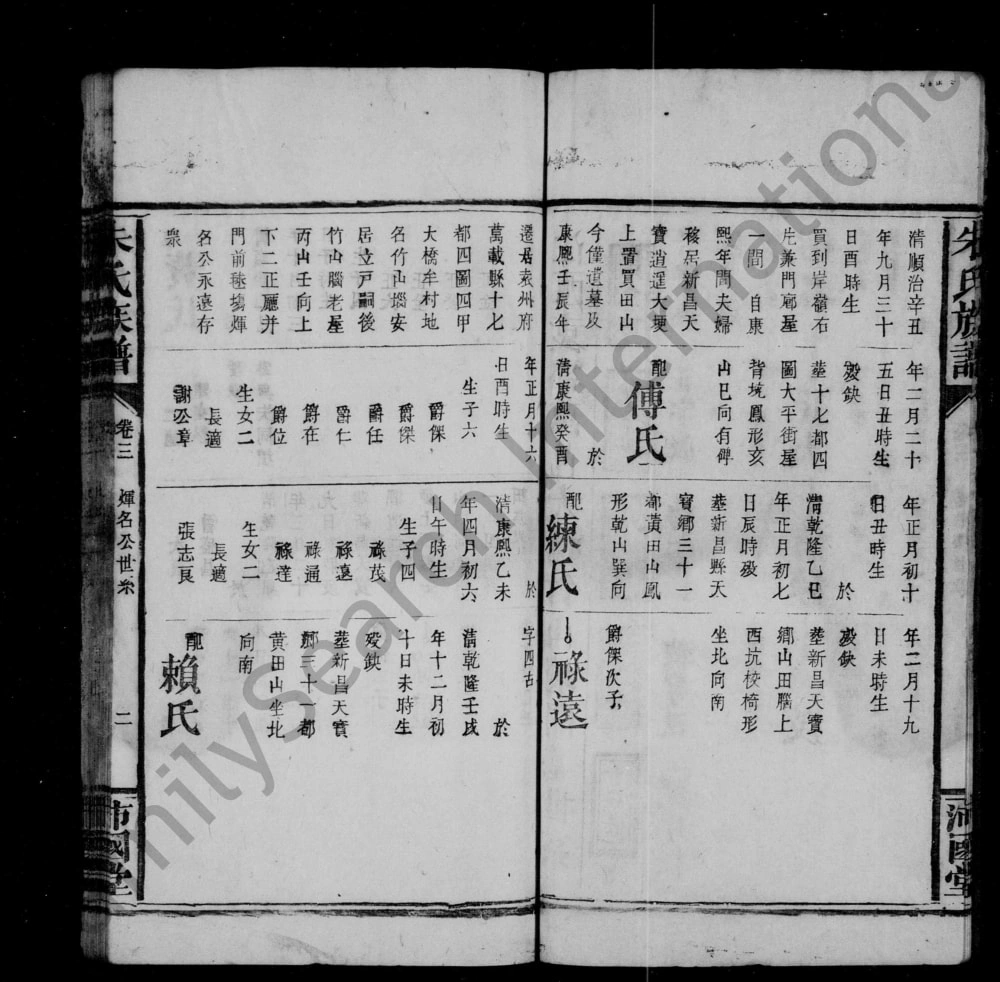 朱氏族譜
清順治辛丑
年九月三十
日酉時生
買到岸嶺右
片兼門廊屋
一間 自康
熙年間夫婦
移居新昌天
寶逍遥大埂
上置買田山
今僅遺墓及
康熙壬辰年
年二月二十
五日丑時生
歿缺
塟十七都四
圖大平街屋
背坑鳳形亥
山巳向有碑
配傅氏 於
清康熙癸酉
年正月初十
日丑時生
於
清乾隆乙巳
年正月初七
日辰時歿
塟新昌縣天
寶鄉三十一
都黃田山鳳
形乾山巽向
配練氏
年二月十九
日未時生
歿缺
塟新昌天寶
鄉山田腦上
西坑校椅形
坐北向南
爵傑次子
祿遠
沛國堂
遷居袁州府
萬載縣十七
都四圖四甲
大橋牟村地
名竹山墈安
居立戶嗣後
竹山腦老屋
丙山壬向上
下二正廳并
門前毬塲煇
名公永遠存
衆
年正月十六
日酉時生
生子六
爵傑
爵傑
爵任
爵仁
爵在
爵位
生女二
長適
謝公章
於
清康熙乙未
年四月初六
日午時生
生子四
祿茂
祿遠
祿通
祿達
生女二
長適
張志良
字四古
於
清乾隆壬戌
年十二月初
十日未時生
歿缺
塟新昌天寶
鄉三十一都
黃田山坐北
向南
配賴氏
朱氏族譜
卷二
煇名公世系
二
沛國堂
FamilySearch International